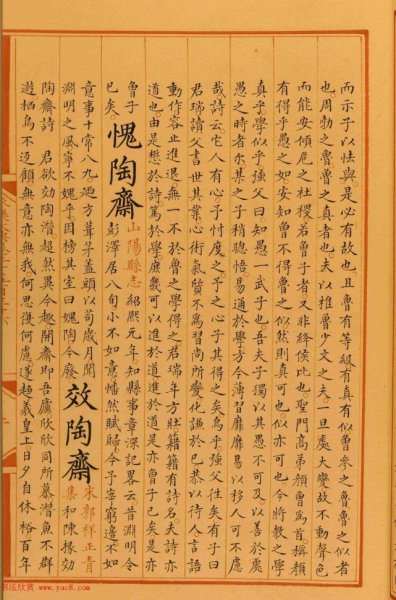 而示子以怯與是必有故也且魯有等級有真有似魯參之魯魯之似者
也周勃之魯魯之真者也夫以椎魯少文之夫一旦處大變故不動聲色
而能安傾危之社稷若魯子者又非絳侯比也聖門高弟顏曾為首稱顏
有得乎愚之如安知曾不得魯之似然則真可也似亦可也今將教之學
真乎學似乎強父曰知愚一武子也吾夫子獨以其愚不可及以善於處
愚之時者尔集之子稍聰悟易通於學方今薄習靡靡易以移人可不慮
哉詩云它人有心予忖度之予之心子其得之矣乎強父往矣有子曰
君瑞讀父書世其業心術氣質不為習尚所變化謙於巳恭以待人言語
動作容止進退無一不於魯之學得之君瑞年方壯籍籍有詩名夫詩亦
道也由是懋於詩篤於學庶幾可以進於道進於道是亦曾子巳矣是亦
魯子巳矣 愧陶齋 山陽縣志紹熙元年知縣事章深記畧云昔淵明令
彭澤居八旬小不如意幡然賦歸今予宰窮邊不如
意事十常八九迺方葺茅蓋頭以茍歲月聞
淵明之風寧不媿乎因榜其室曰媿陶令廢 效陶齋 朱郭祥正青
集和陳掾効
陶齋詩 君欲効陶潛超然異今趣開齋即吾廬欣欣同所慕潛魚不群
遊栖鳥不返顧無意亦無我何思復何慮遂趨羲皇上日夕自休裕百年
书法欣赏 www.yac8.com